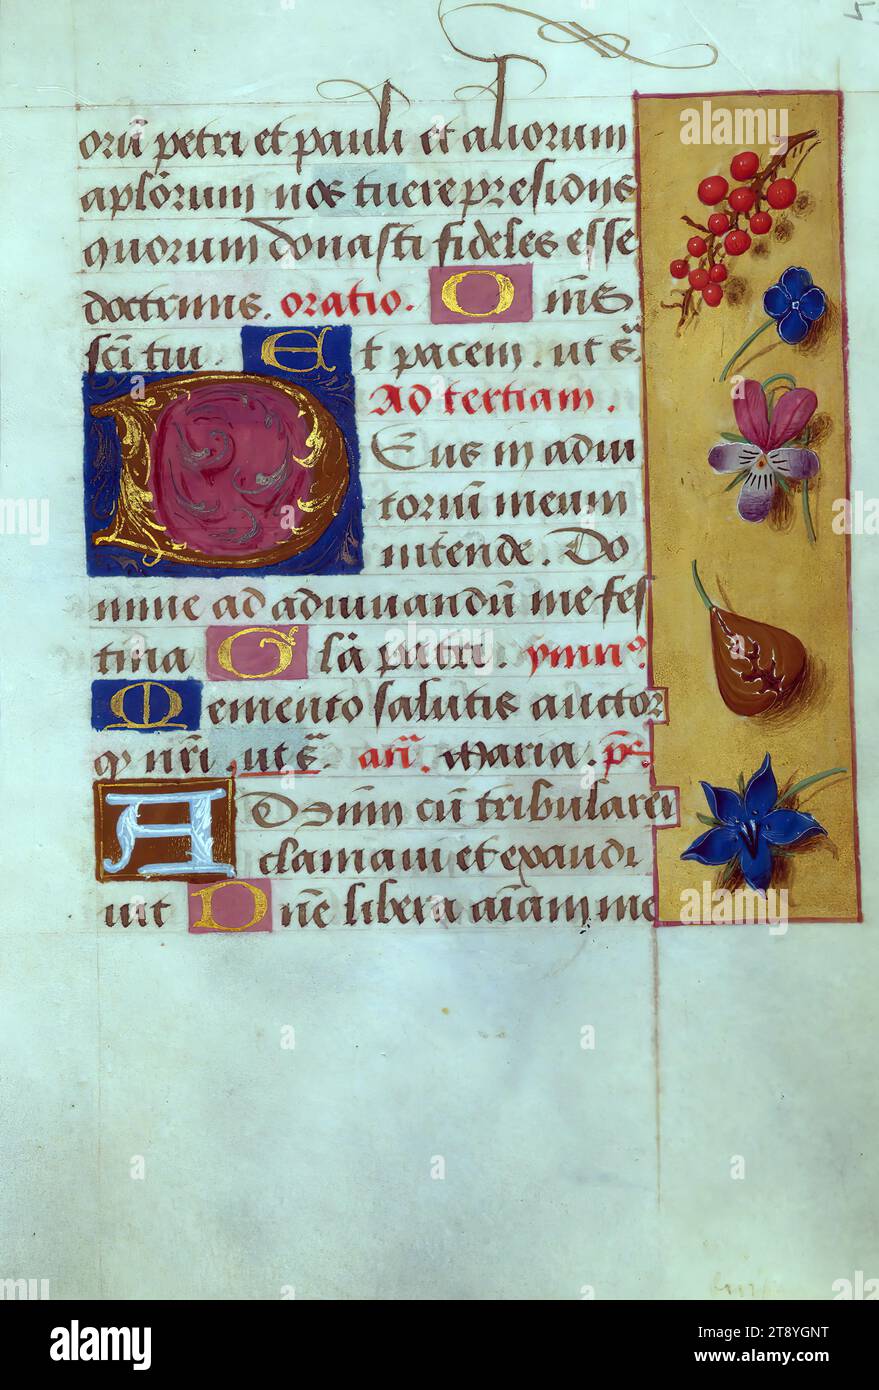 orū petri et pauli et aliorum
aplōrum nos tuere presidiis
quorum donasti fideles esse
doctrinis. oratio. Omēs
scī tui. Et pacem. ut sᵃ
Ad tertiam.
Deus in adiu
toriū meum
intende. Do
mine ad adiuuandū me fes
tina Glā patri. ymnᵒ.
Memento salutis auctor
qͥ nrī. ut sᵃ. añ. Maria. ps.
AD dn̄m cū tribularer
clamaui et exaudi
uit Dn̄e libera aīam me
alamy
Image ID: 2T8YGNT
www.alamy.com